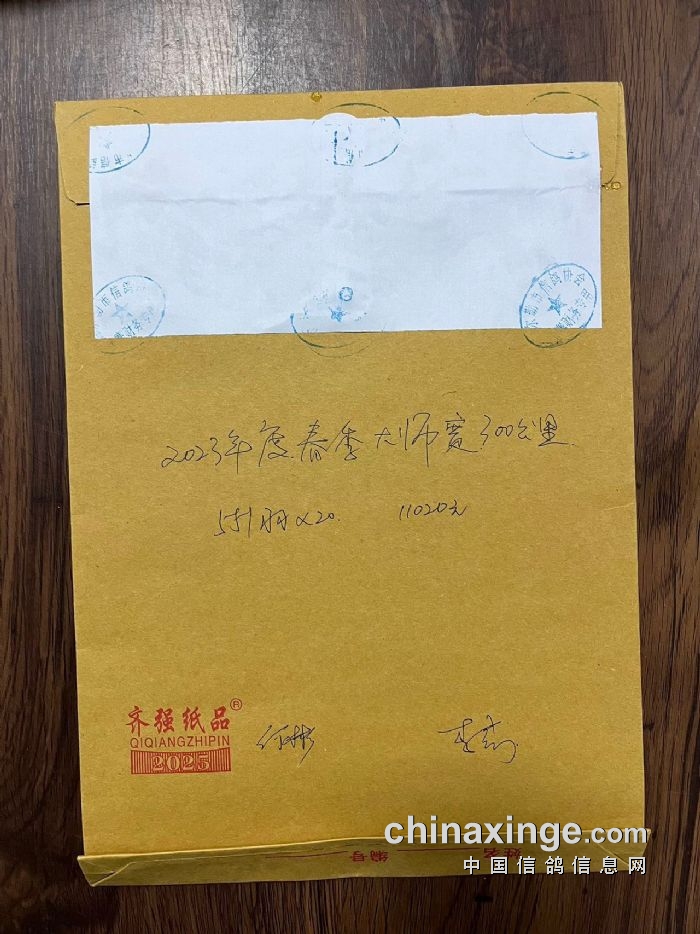 市信鸽协会
2023年度春季大师赛300公里
551羽×20. 11020元
齐强纸品®
QIQIANGZHIPIN
2025
何彬
编号
姓名
chinaxinge.com
中国信鸽信息网